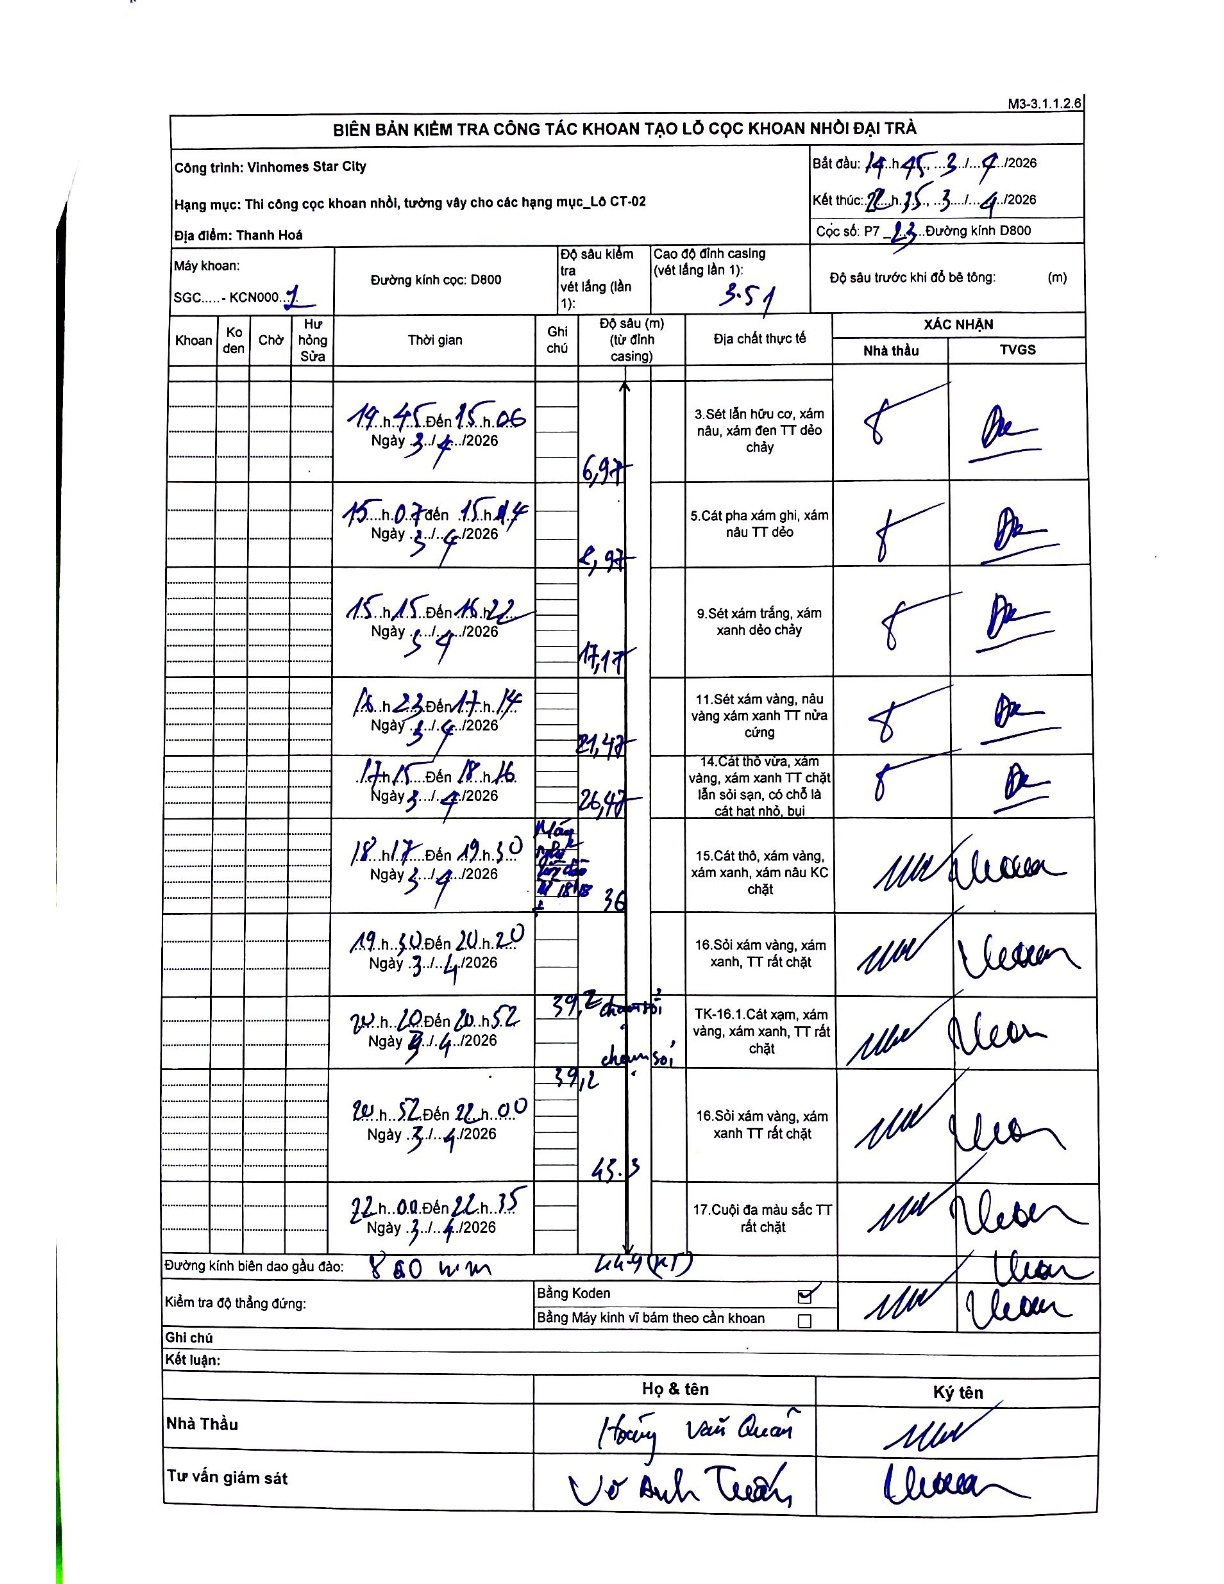 M3-3.1.1.2.6
BIÊN BẢN KIỂM TRA CÔNG TÁC KHOAN TẠO LỖ CỌC KHOAN NHỒI ĐẠI TRÀ
Công trình: Vinhomes Star City
Bắt đầu: 14.h 45, ..3../..4../2026
Hạng mục: Thi công cọc khoan nhồi, tường vây cho các hạng mục_Lô CT-02
Kết thúc: 22.h.35, ..3../..4../2026
Địa điểm: Thanh Hoá
Cọc số: P7_23..Đường kính D800
Máy khoan:
SGC.....- KCN000..1.
Đường kính cọc: D800
Độ sâu kiểm tra
vét lắng (lần 1):
Cao độ đỉnh casing
(vét lắng lần 1):
3.51
Độ sâu trước khi đổ bê tông: (m)
Khoan
Ko den
Chờ
Hư hỏng Sửa
Thời gian
Ghi chú
Độ sâu (m)
(từ đỉnh casing)
Địa chất thực tế
XÁC NHẬN
Nhà thầu
TVGS
14..h.45.Đến 15.h.06
Ngày .3../.4../2026
6,97
3.Sét lẫn hữu cơ, xám
nâu, xám đen TT dẻo
chảy
15...h.07.đến .15.h.14
Ngày .3../..4../2026
8,97
5.Cát pha xám ghi, xám
nâu TT dẻo
15.h.15..Đến 16.h.22
Ngày .3../..4../2026
17,17
9.Sét xám trắng, xám
xanh dẻo chảy
16.h 23.Đến 17.h.14
Ngày .3../..4../2026
21,47
11.Sét xám vàng, nâu
vàng xám xanh TT nửa
cứng
.17.h 15...Đến 18.h.16
Ngày 3.../..4../2026
26,47
14.Cát thô vừa, xám
vàng, xám xanh TT chặt
lẫn sỏi sạn, có chỗ là
cát hạt nhỏ, bụi
18..h17...Đến .19.h.30
Ngày .3../..4../2026
Máy
36
15.Cát thô, xám vàng,
xám xanh, xám nâu KC
chặt
19.h..30.Đến 20.h.20
Ngày .3../..4../2026
39,2 chạm sỏi
16.Sỏi xám vàng, xám
xanh, TT rất chặt
20..h..20.Đến 20.h52
Ngày .3./..4../2026
chạm sỏi
39,2
TK-16.1.Cát xạm, xám
vàng, xám xanh, TT rất
chặt
20..h..52.Đến 22.h..00
Ngày .3../..4../2026
43.3
16.Sỏi xám vàng, xám
xanh TT rất chặt
22.h..00.Đến 22.h..35
Ngày .3../..4../2026
17.Cuội đa màu sắc TT
rất chặt
Đường kính biên dao gầu đào: 800 mm
44.9 (KT)
Kiểm tra độ thẳng đứng:
Bằng Koden
Bằng Máy kinh vĩ bám theo cần khoan
Ghi chú
Kết luận:
Họ & tên
Ký tên
Nhà Thầu
Hoàng Văn Quân
Tư vấn giám sát
Võ Anh Tuấn